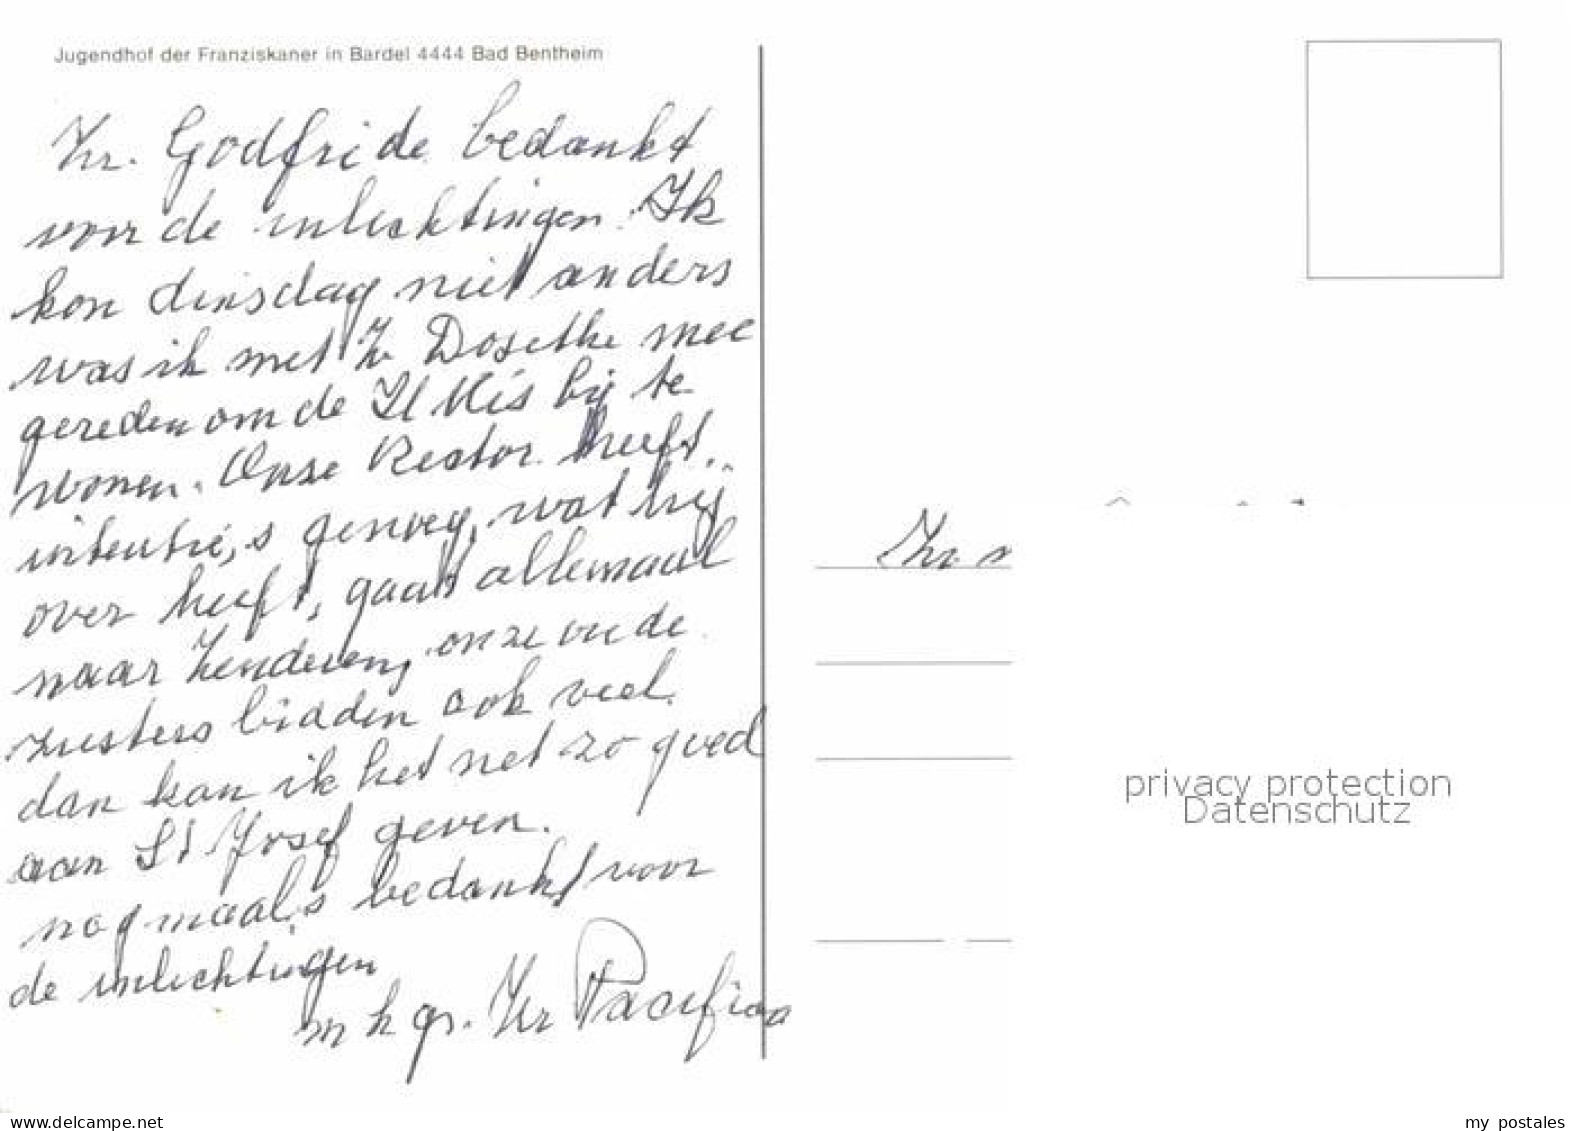 Jugendhof der Franziskaner in Bardel 4444 Bad Bentheim
Zr. Godfride bedankt
voor de inlichtingen. Ik
kon dinsdag niet anders
was ik met Zr Dosethe mee
gereden om de H Mis bij te
wonen. Onze Rector heeft
intentie,s genoeg, wat hij
over heeft, gaat allemaal
naar Zenderen, onze oude
zusters bidden ook veel.
dan kan ik het net zo goed
aan St Josef geven.
nogmaals bedankt voor
de inlichtingen
m h gr. Zr Pacifica
Zr.
privacy protection
Datenschutz
www.delcampe.net
my_postales